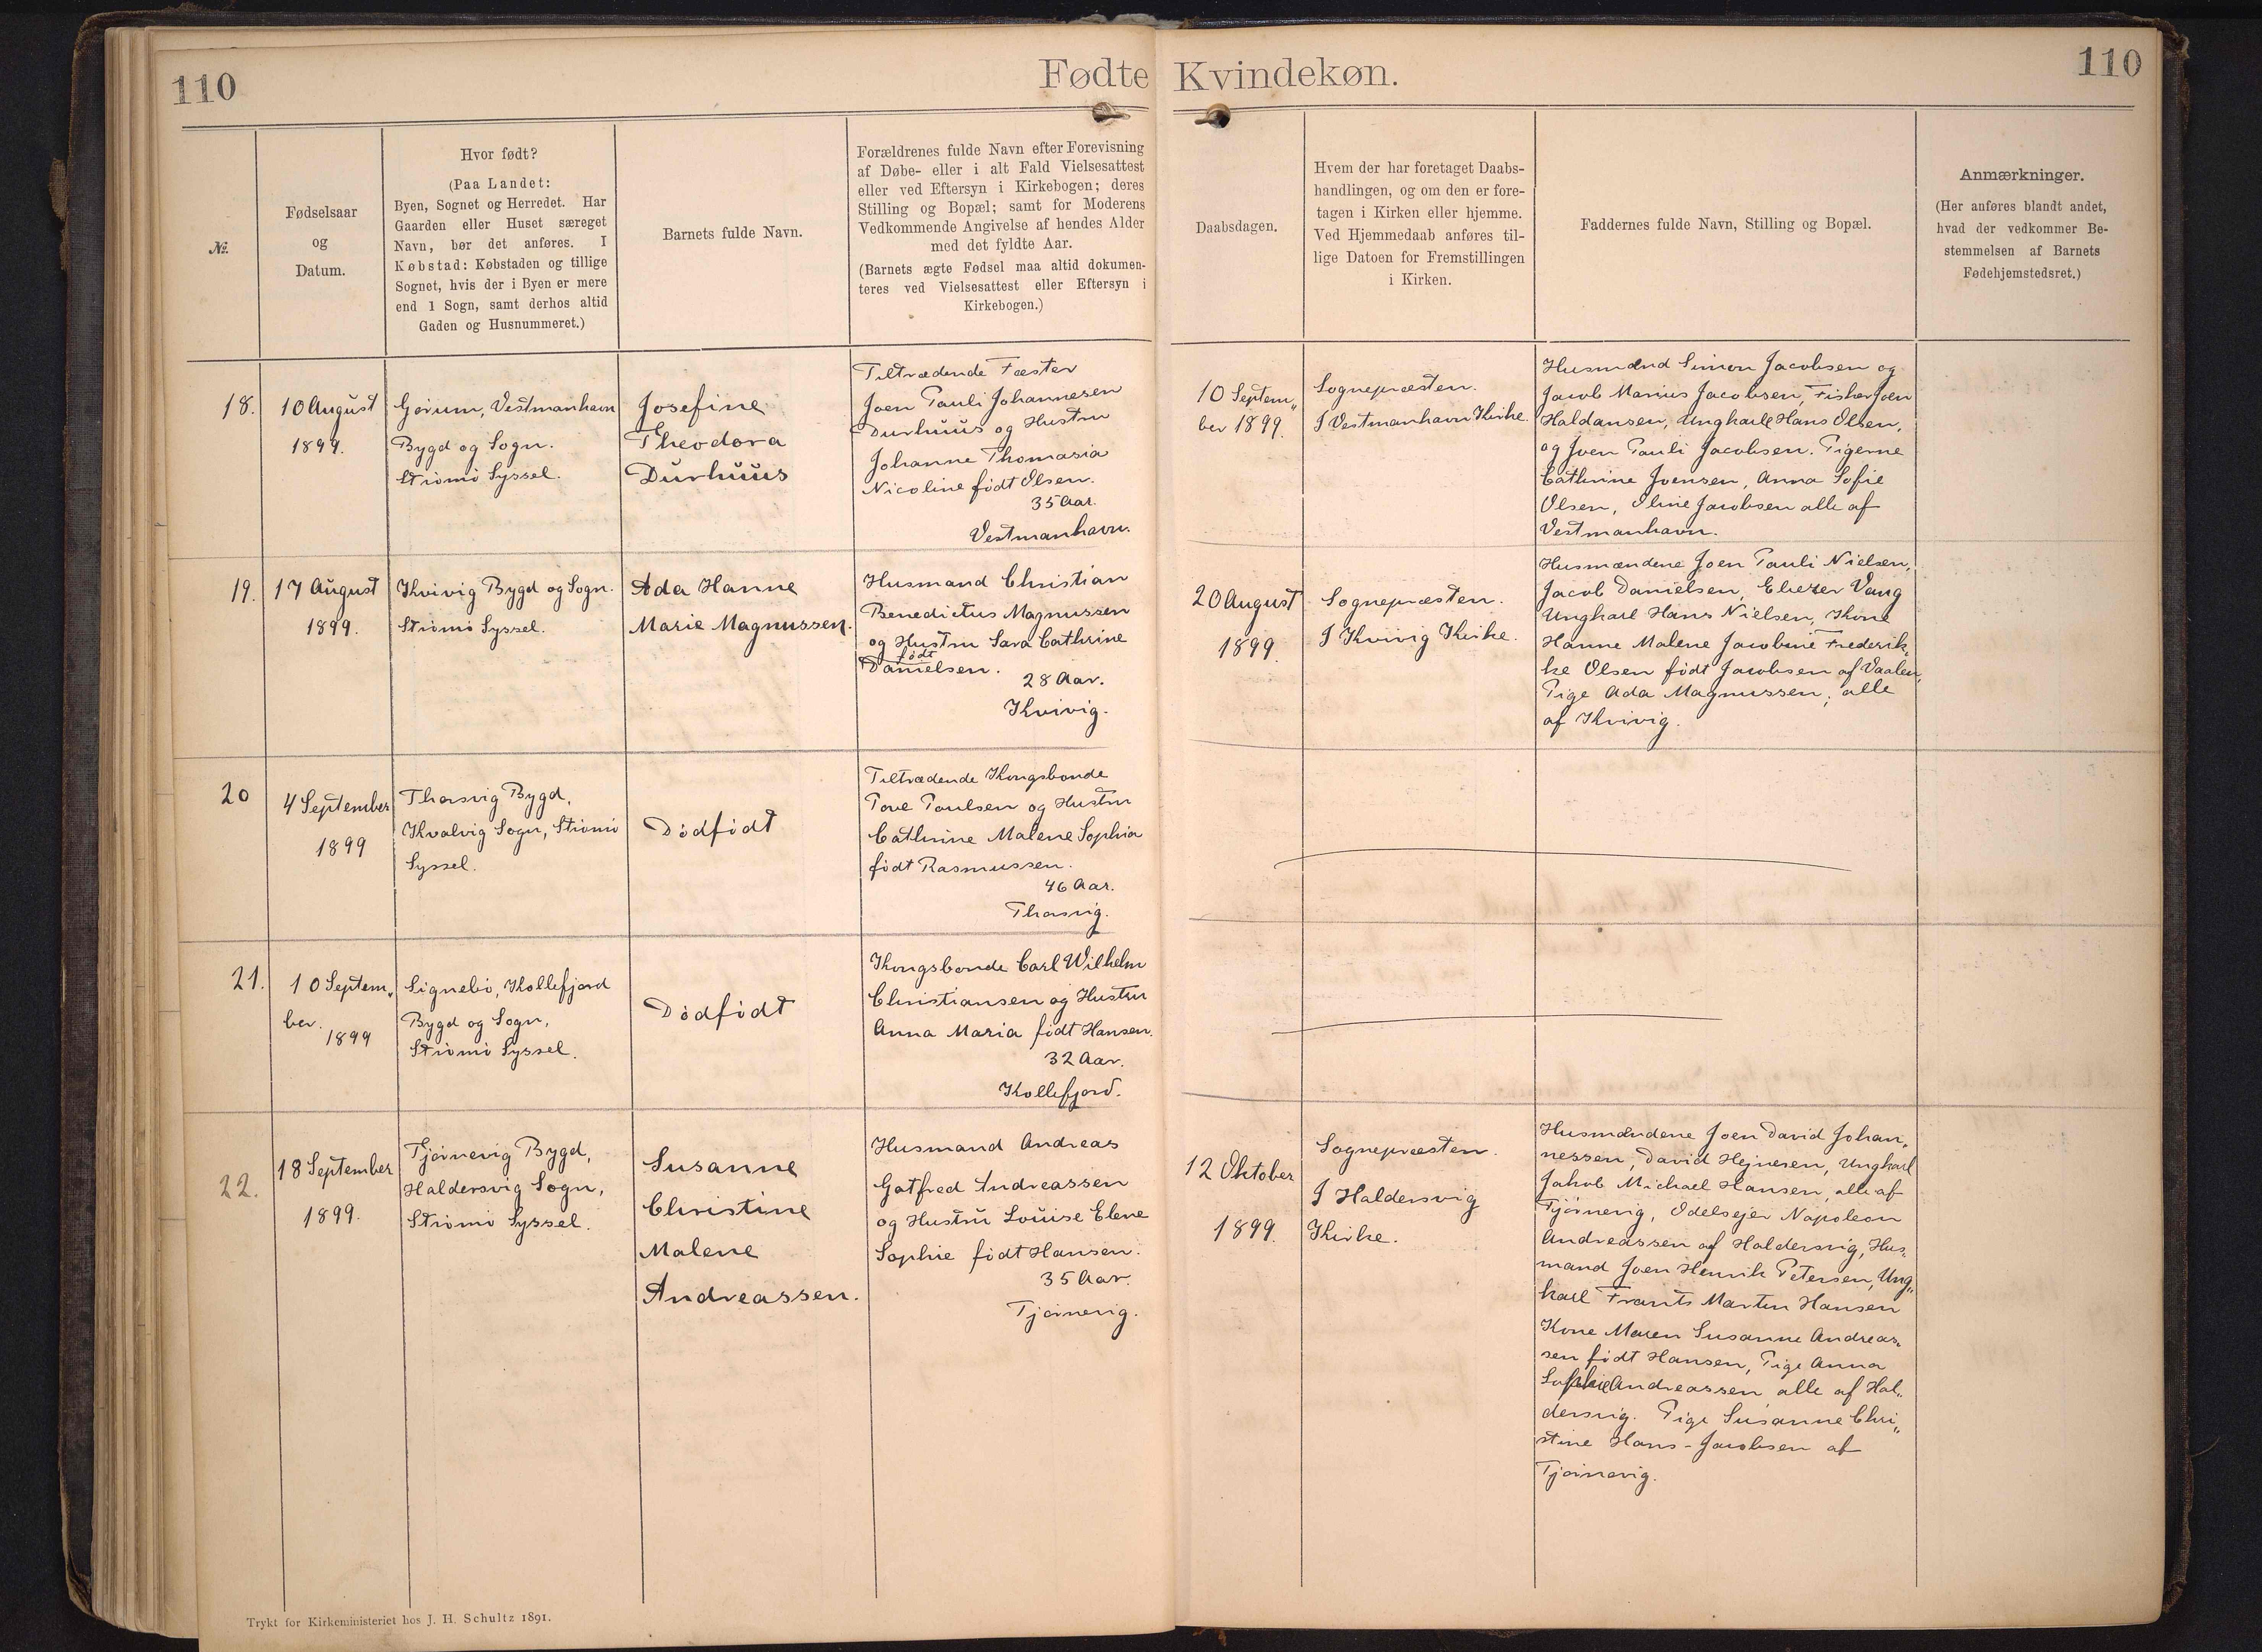 110
Fødte Kvindekøn.
110
№.
Fødselsaar
og
Datum.
Hvor født?
(Paa Landet:
Byen, Sognet og Herredet. Har
Gaarden eller Huset særeget
Navn, bør det anføres. I
Købstad: Købstaden og tillige
Sognet, hvis der i Byen er mere
end 1 Sogn, samt derhos altid
Gaden og Husnummeret.)
Barnets fulde Navn.
Forældrenes fulde Navn efter Forevisning
af Døbe- eller i alt Fald Vielsesattest
eller ved Eftersyn i Kirkebogen; deres
Stilling og Bopæl; samt for Moderens
Vedkommende Angivelse af hendes Alder
med det fyldte Aar.
(Barnets ægte Fødsel maa altid dokumen-
teres ved Vielsesattest eller Eftersyn i
Kirkebogen.)
Daabsdagen.
Hvem der har foretaget Daabs-
handlingen, og om den er fore-
tagen i Kirken eller hjemme.
Ved Hjemmedaab anføres til-
lige Datoen for Fremstillingen
i Kirken.
Faddernes fulde Navn, Stilling og Bopæl.
Anmærkninger.
(Her anføres blandt andet,
hvad der vedkommer Be-
stemmelsen af Barnets
Fødehjemstedsret.)
18.
10 August
1899.
Gørum, Vestmanhavn
Bygd og Sogn.
Strömö Syssel.
Josefine
Theodora
Durhuus
Tiltrædende Fæster
Joen Pauli Johannesen
Durhuus og Hustru
Johanne Thomasia
Nicoline födt Olsen.
35 Aar.
Vestmanhavn.
10 Septem„
ber 1899.
Sognepræsten.
I Vestmanhavn Kirke.
Husmænd Simon Jacobsen og
Jacob Marius Jacobsen, Fisker Joen
Haldansen, Ungkarle Hans Olsen,
og Joen Pauli Jacobsen. Pigerne
Cathrine Joensen, Anna Sofie
Olsen, Oline Jacobsen alle af
Vestmanhavn.
19.
17 August
1899.
Kvivig Bygd og Sogn.
Strömö Syssel.
Ada Hanne
Marie Magnussen.
Husmand Christian
Benedictus Magnussen
og Hustru Sara Cathrine
födt
Danielsen.
28 Aar.
Kvivig.
20 August
1899
Sognepræsten.
I Kvivig Kirke.
Husmændene Joen Pauli Nielsen,
Jacob Danielsen, Eliezer Vang
Ungkarl Hans Nielsen, Kone
Hanne Malene Jacobine Frederik„
ke Olsen födt Jacobsen af Vaalen,
Pige Ada Magnussen, alle
af Kvivig.
20
4 September
1899
Thorsvig Bygd,
Kvalvig Sogn, Strömö
Syssel.
Dödfödt
Tiltrædende Kongsbonde
Poul Poulsen og Hustru
Cathrine Malene Sophia
födt Rasmussen.
46 Aar.
Thorsvig.
21.
10 Septem„
ber.
1899
Signebö, Kollefjord
Bygd og Sogn,
Strömö Syssel.
Dödfödt
Kongsbonde Carl Wilhelm
Christiansen og Hustru
Anna Maria födt Hansen.
32 Aar.
Kollefjord.
22.
18 September
1899.
Tjörnevig Bygd,
Haldersvig Sogn,
Strömö Syssel.
Susanne
Christine
Malene
Andreassen.
Husmand Andreas
Gotfred Andreassen
og Hustru Louise Elene
Sophie födt Hansen.
35 Aar.
Tjörnevig.
12 Oktober
1899.
Sognepræsten.
I Haldersvig
Kirke.
Husmændene Joen David Johan„
nessen, David Hejnesen, Ungkarl
Jakob Michael Hansen, alle af
Tjörnevig, Odelsejer Napoleon
Andreassen af Haldersvig, Hus„
mand Joen Henrik Petersen, Ung„
karl Frants Martin Hansen
Kone Maren Susanne Andreas„
sen födt Hansen, Pige Anna
Sophie Andreassen alle af Hal„
dersvig. Pige Susanne Chri„
stine Hans-Jacobsen af
Tjörnevig.
Trykt for Kirkeministeriet hos J. H. Schultz 1891.